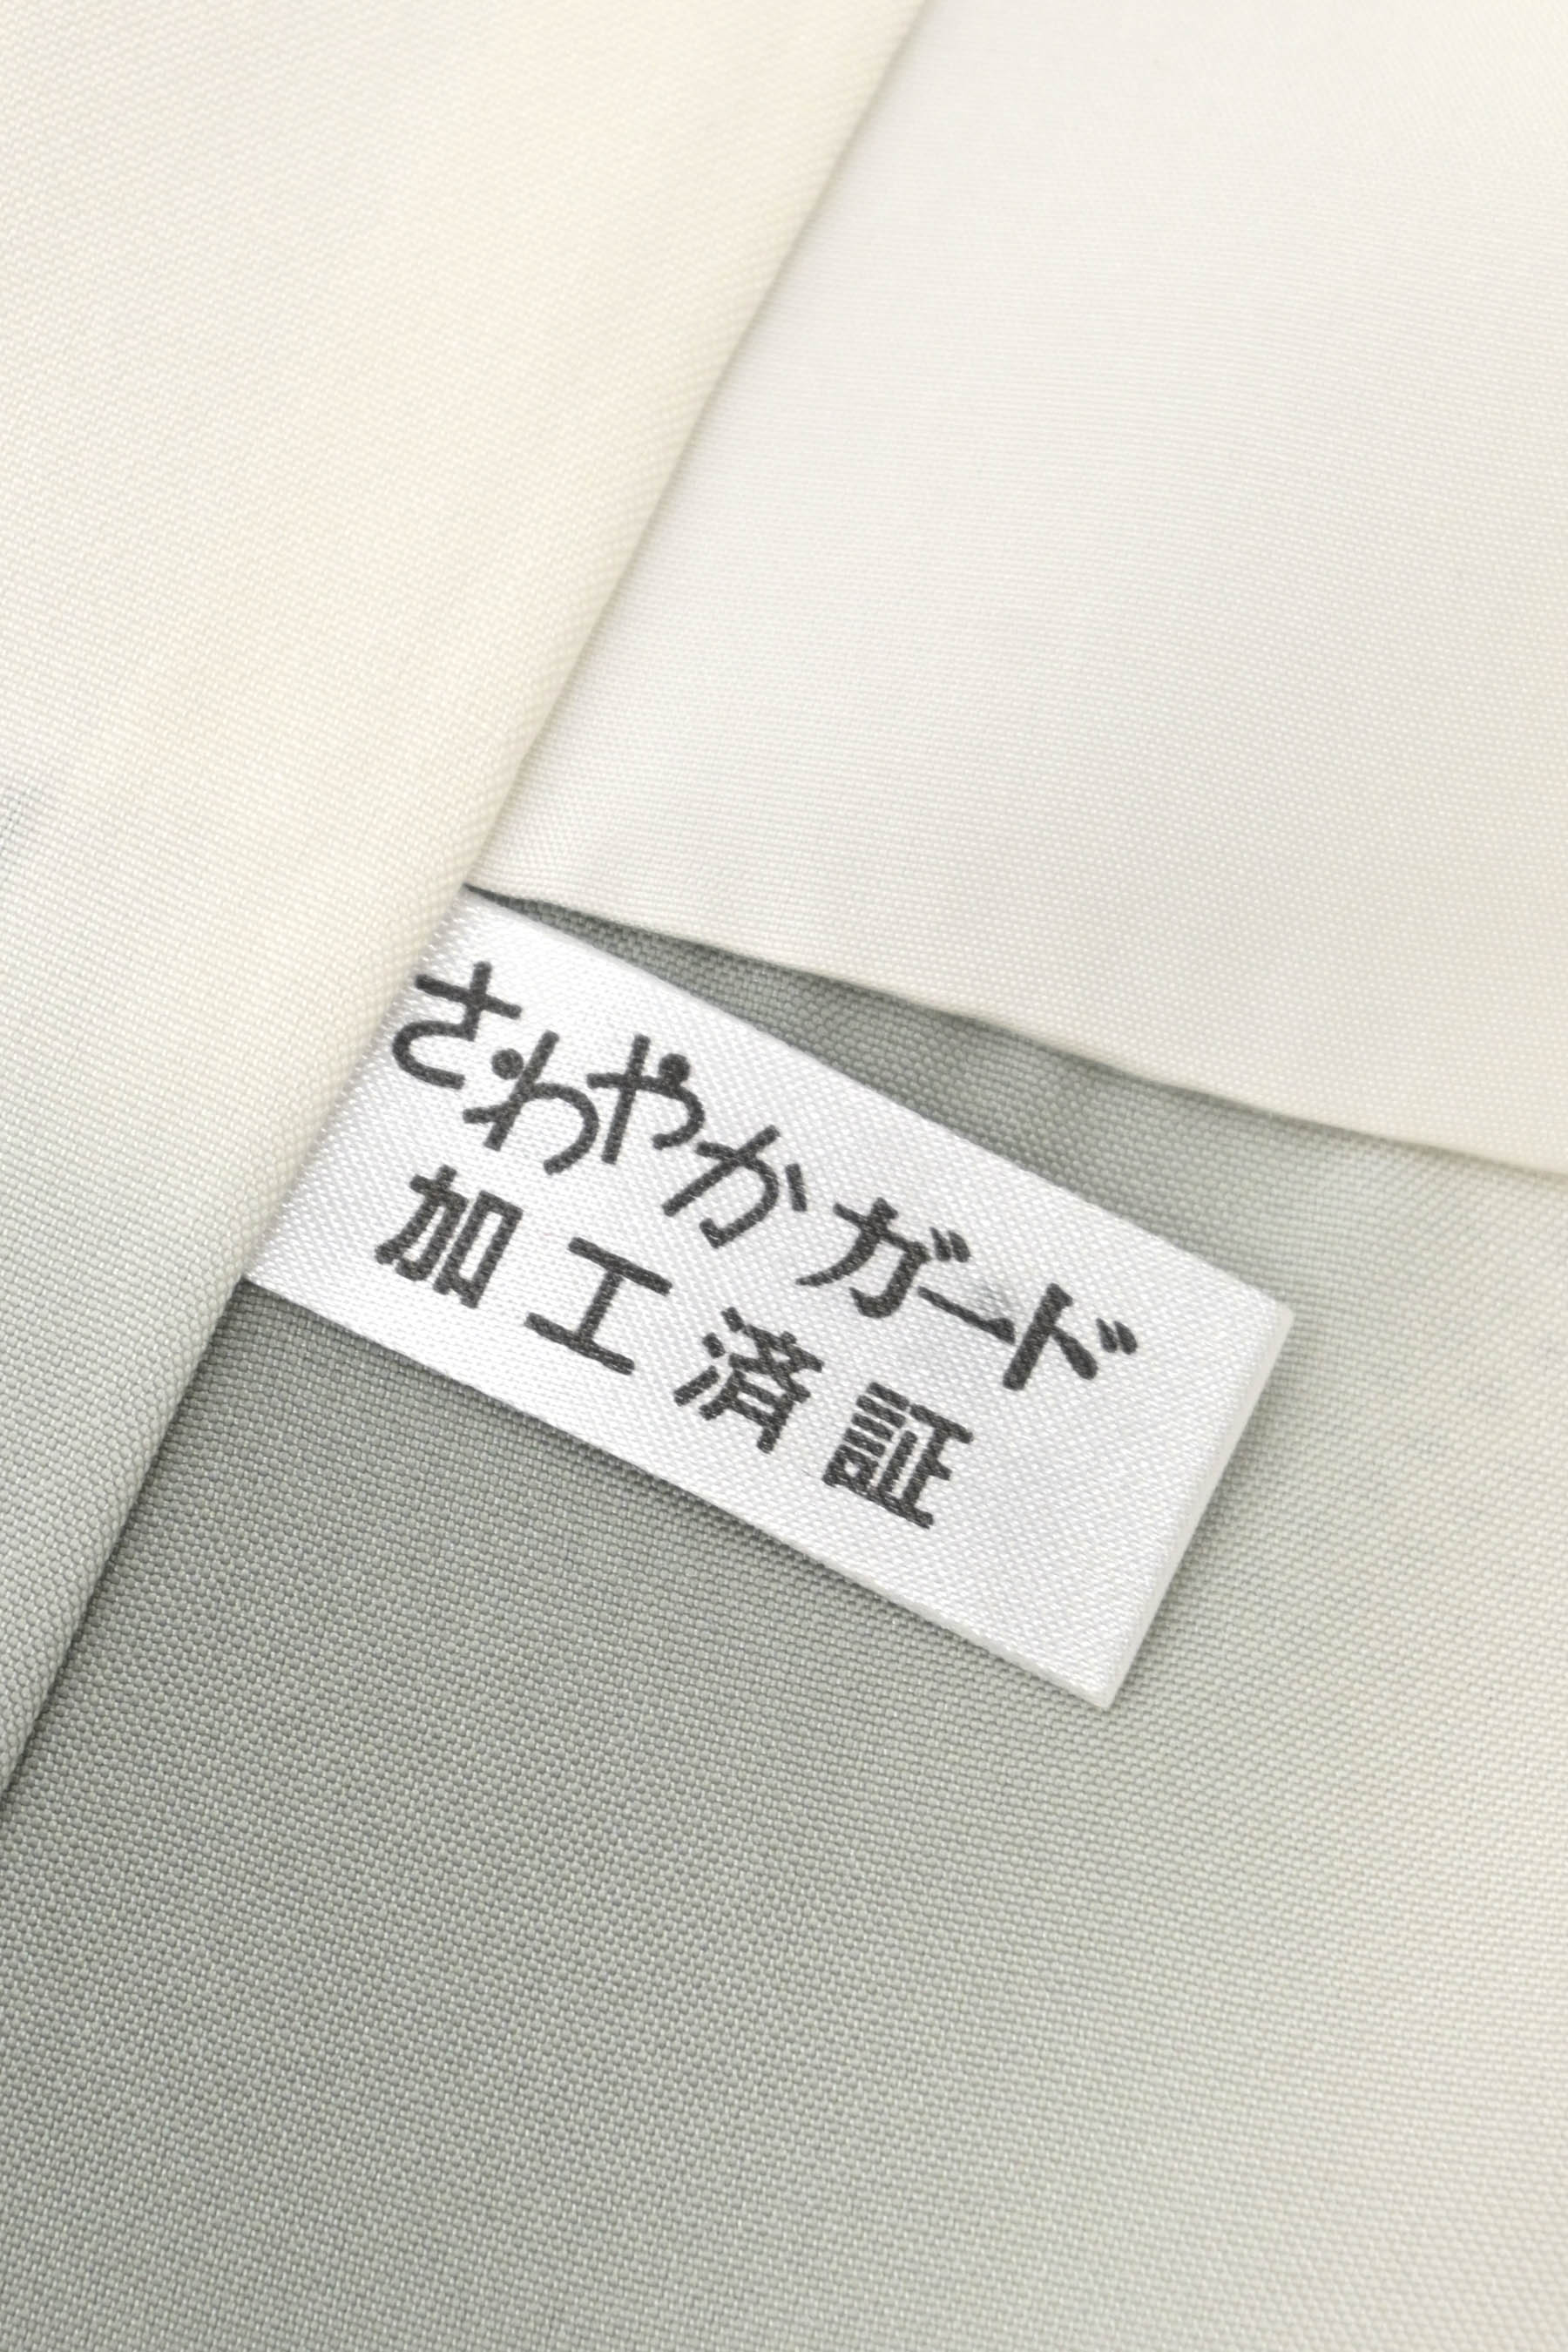 さわやかガード
加工済証